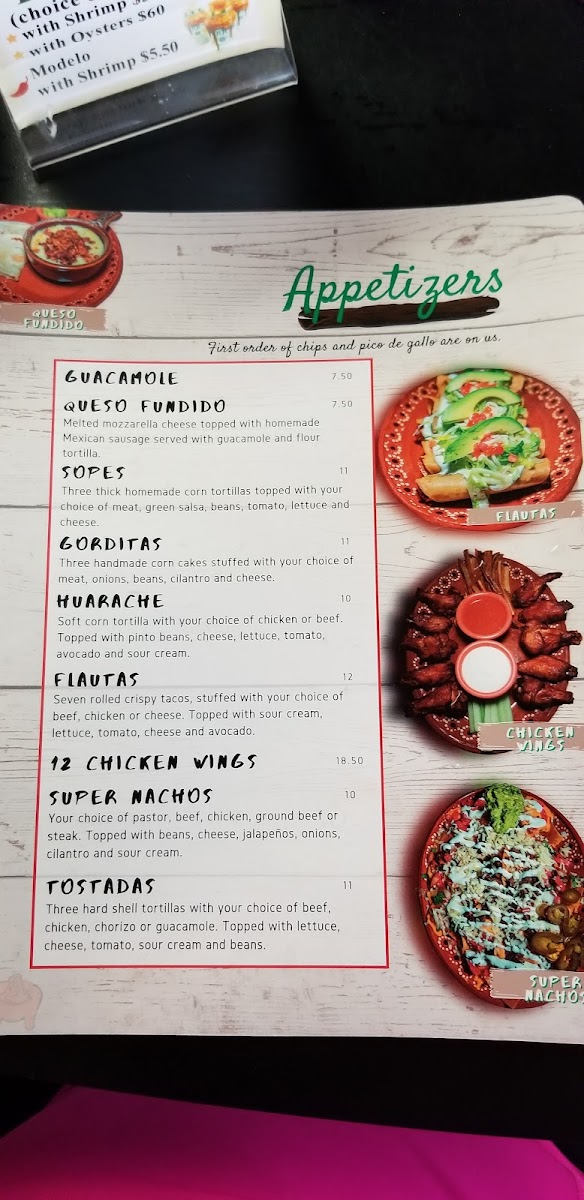 (choice
with Shrimp
with Oysters $60
Modelo
with Shrimp $5.50
QUESO
FUNDIDO
Appetizers
First order of chips and pico de gallo are on us.
GUACAMOLE 7.50
QUESO FUNDIDO 7.50
Melted mozzarella cheese topped with homemade
Mexican sausage served with guacamole and flour
tortilla.
SOPES 11
Three thick homemade corn tortillas topped with your
choice of meat, green salsa, beans, tomato, lettuce and
cheese.
GORDITAS 11
Three handmade corn cakes stuffed with your choice of
meat, onions, beans, cilantro and cheese.
HUARACHE 10
Soft corn tortilla with your choice of chicken or beef.
Topped with pinto beans, cheese, lettuce, tomato,
avocado and sour cream.
FLAUTAS 12
Seven rolled crispy tacos, stuffed with your choice of
beef, chicken or cheese. Topped with sour cream,
lettuce, tomato, cheese and avocado.
12 CHICKEN WINGS 18.50
SUPER NACHOS 10
Your choice of pastor, beef, chicken, ground beef or
steak. Topped with beans, cheese, jalapeños, onions,
cilantro and sour cream.
TOSTADAS 11
Three hard shell tortillas with your choice of beef,
chicken, chorizo or guacamole. Topped with lettuce,
cheese, tomato, sour cream and beans.
FLAUTAS
CHICKEN
WINGS
SUPER
NACHOS